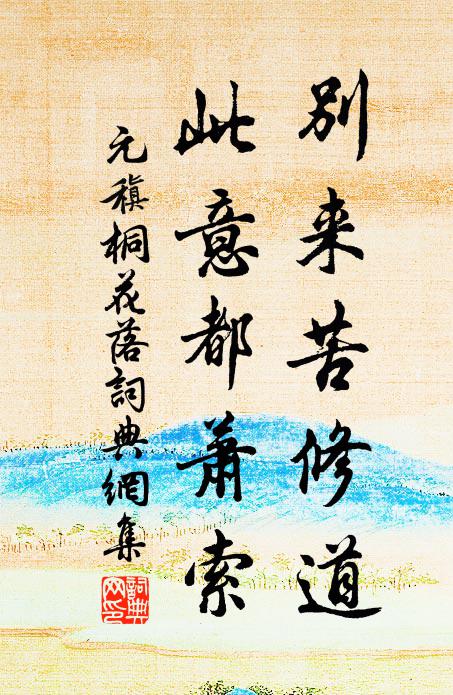 别来苦修道
此意都萧索
元稹桐花落詞典網集
詞典网印